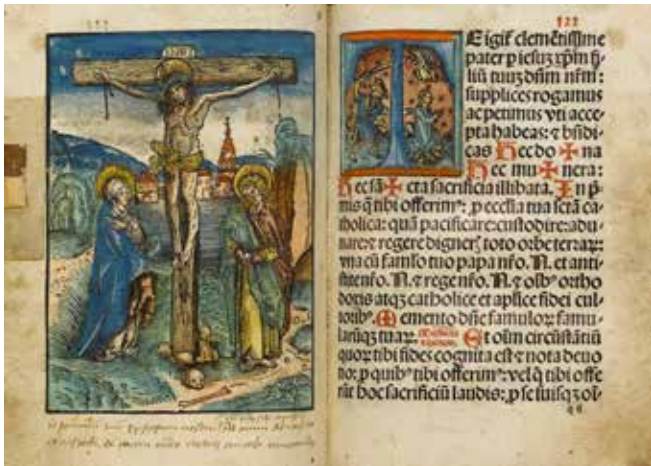 INRI
Eigit᷑ clemētissime
pater p iesuȝ xp̄m fi-
liū tuuȝ dn̄m nr̄m:
supplices rogamus
ac petimus vti acce-
pta habeas: ⁊ bn̄di-
cas Hec do ✠ na
Hec mu ✠ nera:
Hec sā ✠ cta sacrificia illibata. In p̄-
mis q̄ tibi offerim⁹: p ecclīa tua sctā ca-
tholica: quā pacificare: custodire: adu-
nare ⁊ regere digner̄ toto orbe terraꝝ:
vna cū famlo tuo papa nr̄o. N. et anti-
stite nr̄o. N. ⁊ rege nr̄o. N. ⁊ oīb⁹ ortho
doxis atqȝ catholice et aplice fidei cul-
torib⁹. Memento dn̄e famuloꝝ famu-
larūqȝ tuaꝝ. Et oīm circūstātiū
quoꝝ tibi fides cognita est ⁊ nota deuo
tio: p quib⁹ tibi offerim⁹: vel q̄ tibi offe
rūt hoc sacrificiū laudis: p se suisqȝ oī-